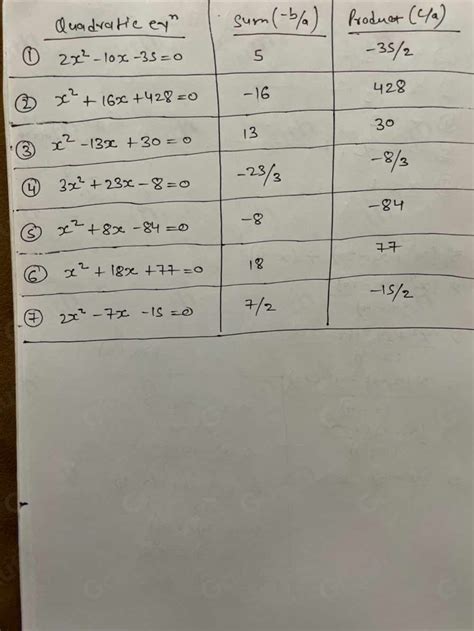 Quadratic eqⁿ Sum (-b/a) Product (c/a)
① 2x² - 10x - 35 = 0 5 -35/2
② x² + 16x + 428 = 0 -16 428
③ x² - 13x + 30 = 0 13 30
④ 3x² + 23x - 8 = 0 -23/3 -8/3
⑤ x² + 8x - 84 = 0 -8 -84
⑥ x² + 18x + 77 = 0 18 77
⑦ 2x² - 7x - 15 = 0 7/2 -15/2